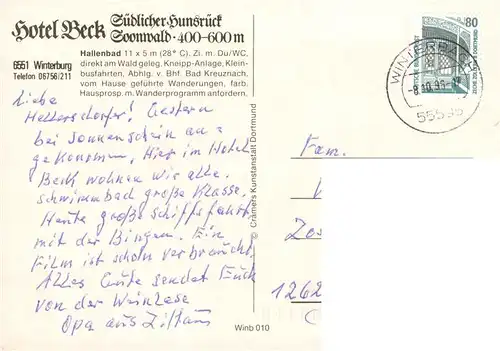 Hotel Beck
Südlicher Hunsrück
Soonwald · 400-600 m
6551 Winterburg
Telefon 06756/211
Hallenbad 11 x 5 m (28° C). Zi. m. Du/WC,
direkt am Wald geleg. Kneipp-Anlage, Klein-
busfahrten, Abhlg. v. Bhf. Bad Kreuznach,
vom Hause geführte Wanderungen, farb.
Hausprosp. m. Wanderprogramm anfordern.
Liebe
Hellersdorfer! Gestern
bei Sonnenschein an=
gekommen, Hier im Hotel
Beck wohnen wir alle.
Schwimmbad große Klasse.
Heute große Schiffsfahrt
mit der Bingen. Ein
Film ist schon verbraucht,
Alles Gute sendet Euch
von der Weinlese
Opa aus Zittau
© Cramers Kunstanstalt Dortmund
Winb 010
80
WINTERBACH
-8.10.95
55595
Fam.
1262